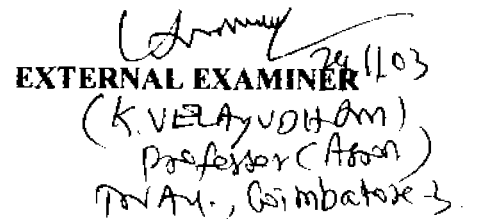 24/1/03
EXTERNAL EXAMINER
(K. VELAYUDHAM)
Professor (Agron)
TNAU., Coimbatore-3.